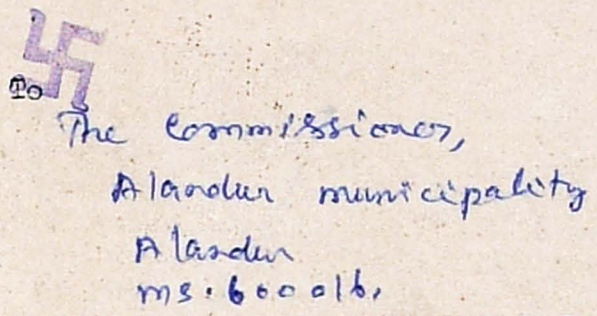 To
The Commissioner,
Alandur municipality
Alandur
ms. 600016.